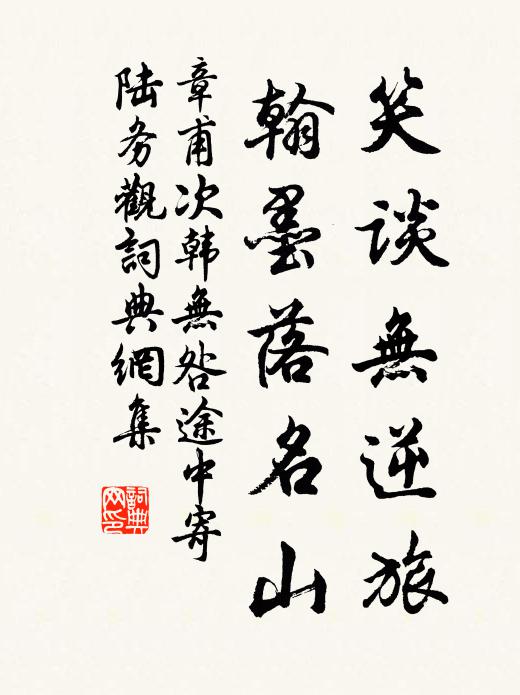 笑谈無逆旅
翰墨落名山
章甫次韩無咎途中寄
陆务觀詞典網集
詞典网印